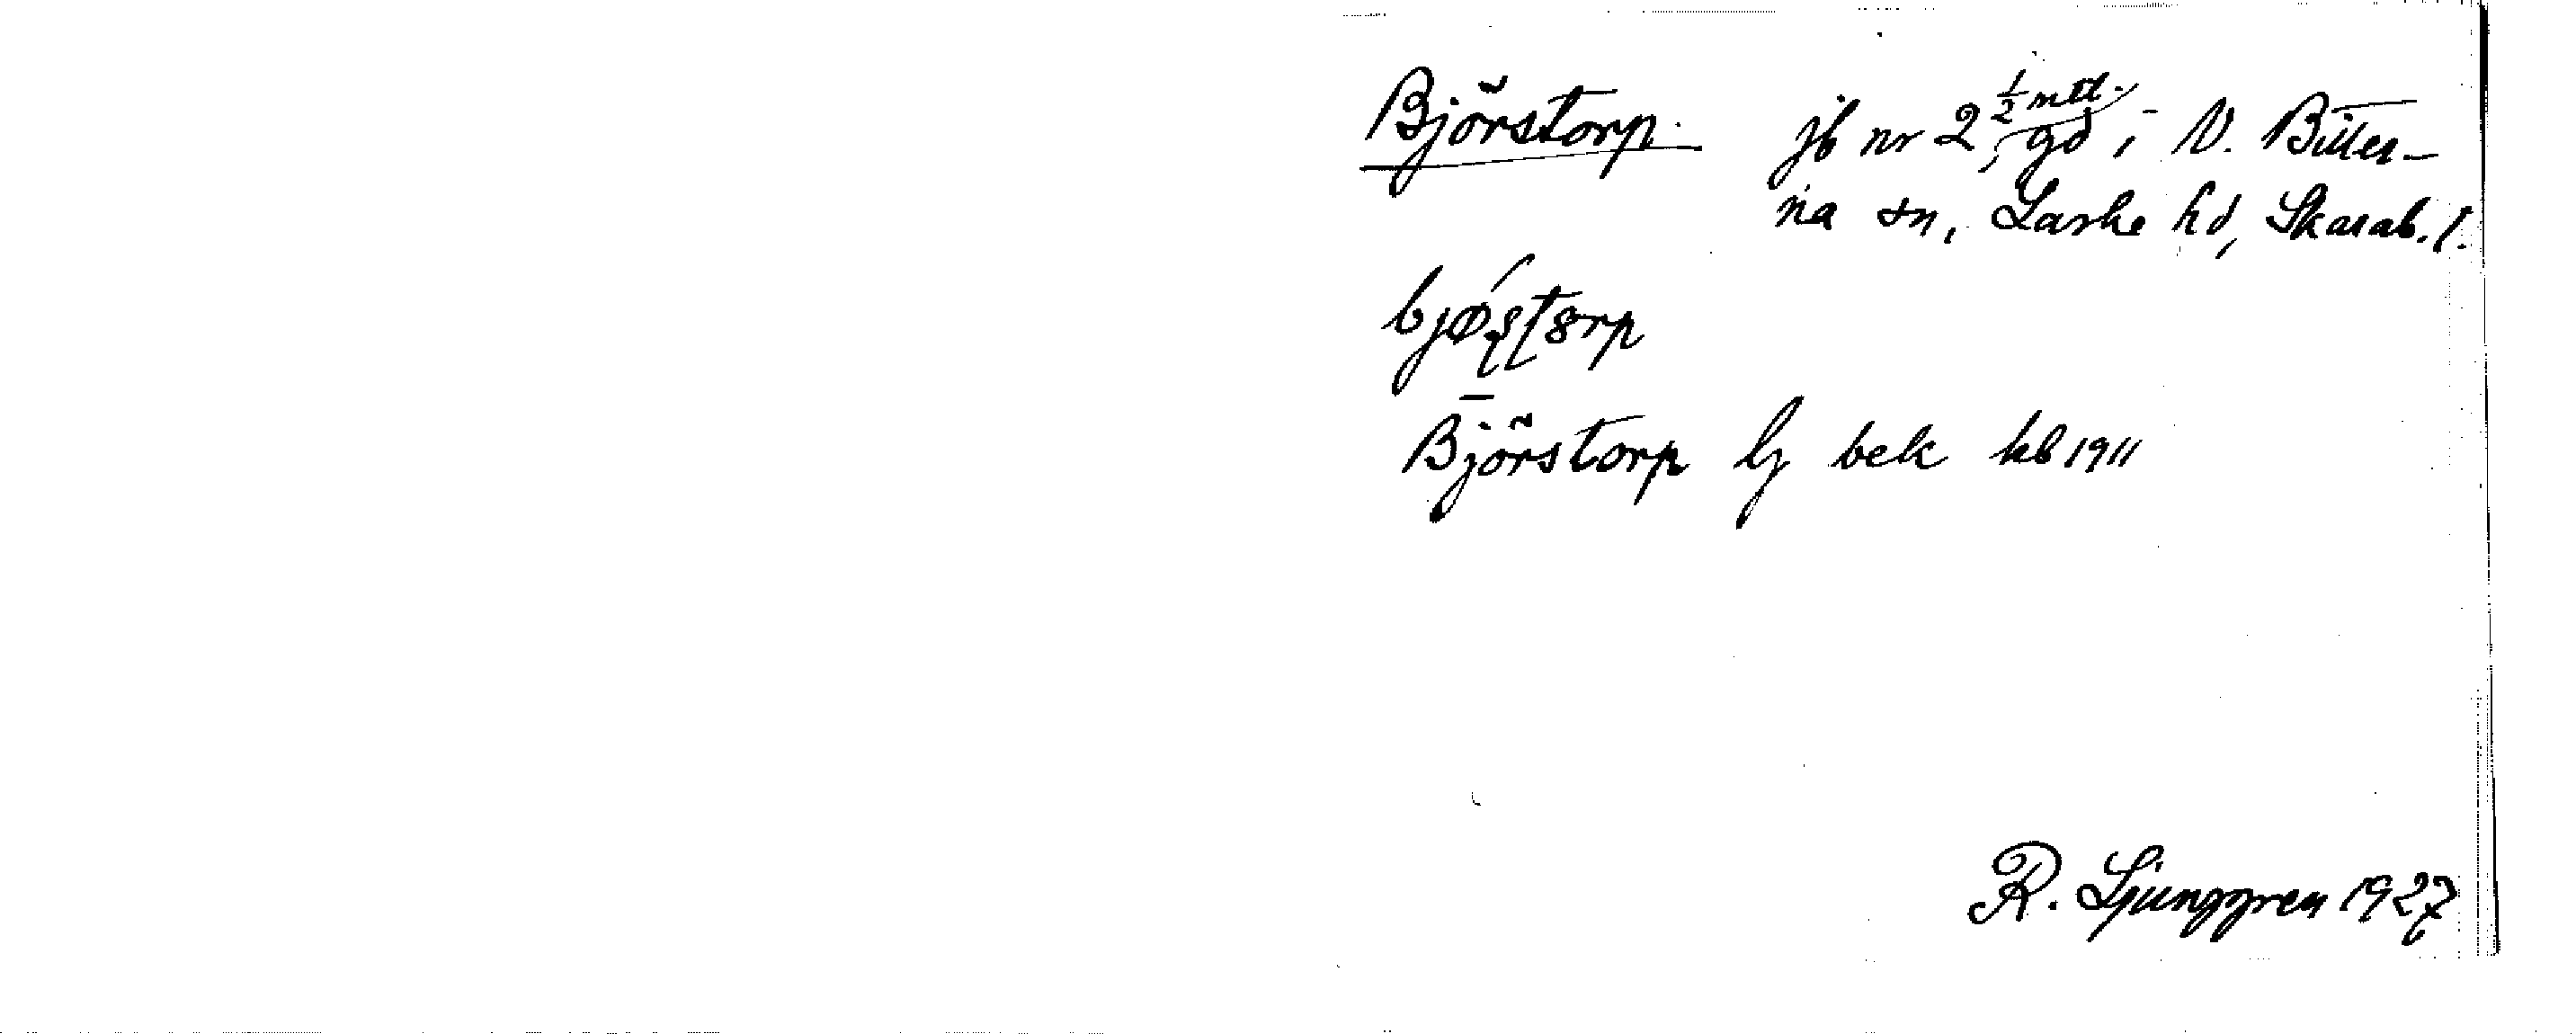 Björstorp jb nr 2, 1/2 mtl. gd i N. Bitter-
na sn, Laske hd, Skarab. l.
bjǿʂʈ8rp
Björstorp lj bek kb 1911
R. Ljunggren 1927